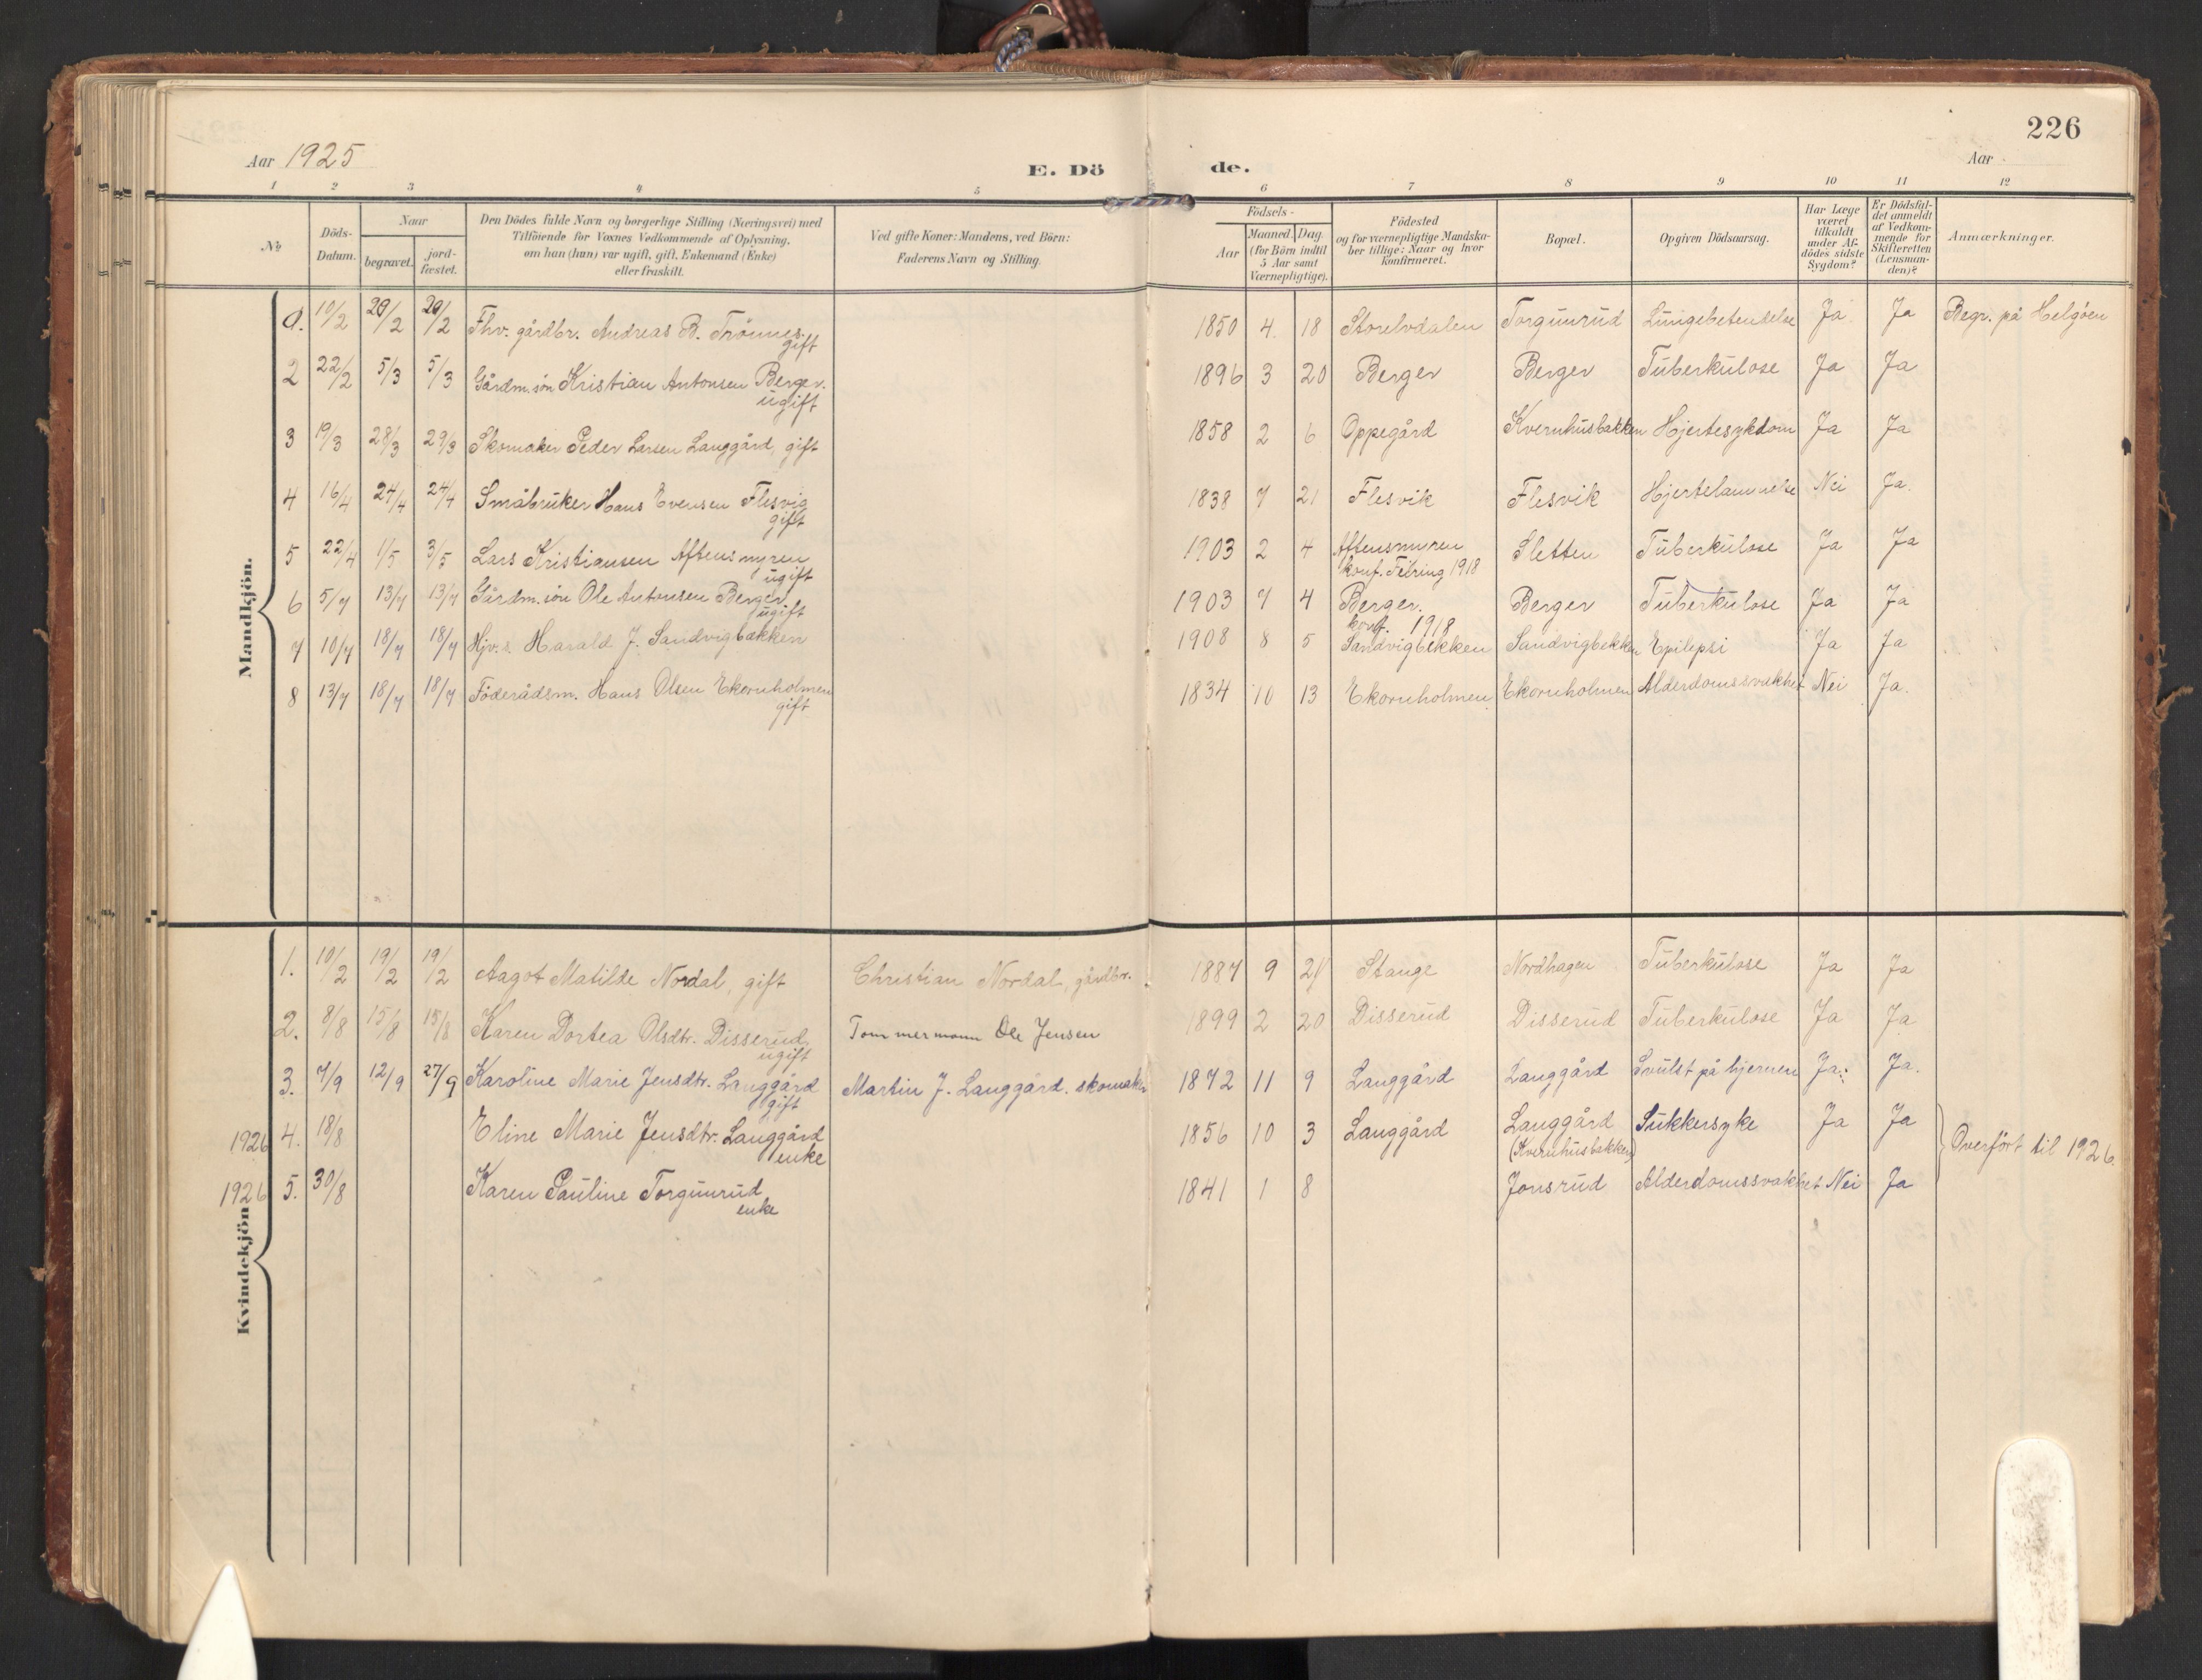 226
Aar 1925
Aar
E. Dö de.
1 2 3 4 5 6 7 8 9 10 11 12
№
Döds-Datum.
Naar
begravet.
jord-fæstet.
Den Dödes fulde Navn og borgerlige Stilling (Næringsvei) med
Tilföiende for Voxnes Vedkommende af Oplysning,
om han (hun) var ugift, gift, Enkemand (Enke)
eller fraskilt.
Ved gifte Koner: Mandens, ved Börn:
Faderens Navn og Stilling.
Födsels-
Aar
Maaned. Dag.
(for Börn indtil
5 Aar samt
Værnepligtige).
Födested
og for værnepligtige Mandska-
ber tillige: Naar og hvor
konfirmeret.
Bopæl.
Opgiven Dödsaarsag.
Har Læge
været
tilkaldt
under Af-
dödes sidste
Sygdom?
Er Dödsfal-
det anmeldt
af Vedkom-
mende for
Skifteretten
(Lensman-
den)?
Anmærkninger.
Mandkjön.
1. 10/2 20/2 20/2 Fhv. gårdbr. Andreas B. Trönnes. 1850 4. 18 Storelvdalen Torgunrud Lungebetendelse Ja Ja Begr. på Helgöen
gift
2 22/2 5/3 5/3 Gårdm.sön Kristian Antonsen Berger. 1896 3 20 Berger Berger Tuberkulose Ja Ja
ugift
3 19/3 28/3 29/3 Skomaker Peder Larsen Langgård, gift 1858 2 6 Oppegård Kvernhusbakken Hjertesykdom Ja Ja
4 16/4 24/4 24/4 Småbruker Hans Evensen Flesvig 1838 7 21 Flesvik Flesvik Hjertelammelse Nei Ja.
gift
5 22/4 1/5 3/5 Lars Kristiansen Aftensmyren 1903 2 4 Aftensmyren Sletten Tuberkulose Ja Ja
ugift konf. Feiring 1918
6 5/7 13/7 13/7 Gårdm.sön Ole Antonsen Berger 1903 7 4 Berger. Berger Tuberkulose Ja Ja
ugift konf. 1918
7 10/7 18/7 18/7 Hjv.s. Harald J. Sandvigbækken 1908 8 5 Sandvigbekken Sandvigbekken Epilepsi Ja Ja
8 13/7 18/7 18/7 Föderådsm. Hans Olsen Ekornholmen 1834 10 13 Ekornholmen Ekornholmen Alderdomssvakhet Nei Ja.
gift
Kvindekjön
1. 10/2 19/2 19/2 Aagot Matilde Nordal, gift Christian Nordal, gårdbr. 1887 9 21 Stange Nordhagen Tuberkulose Ja Ja
2. 8/8 15/8 15/8 Karen Dortea Olsdtr. Disserud, Tommermann Ole Jensen 1899 2 20 Disserud Disserud Tuberkulose Ja Ja
ugift
3. 7/9 12/9 27/9 Karoline Marie Jensdtr. Langgård Martin J. Langgård. skomaker 1872 11 9 Langgård Langgård Svulst på hjernen Ja. Ja.
gift
1926 4. 18/8 Eline Marie Jensdtr. Langgård 1856 10 3 Langgård Langgård Sukkersyke Ja Ja
enke (Kvernhusbakken) Overfört til 1926.
1926 5. 30/8 Karen Pauline Torgunrud 1841 1 8 Jonsrud Alderdomssvakhet Nei Ja
enke